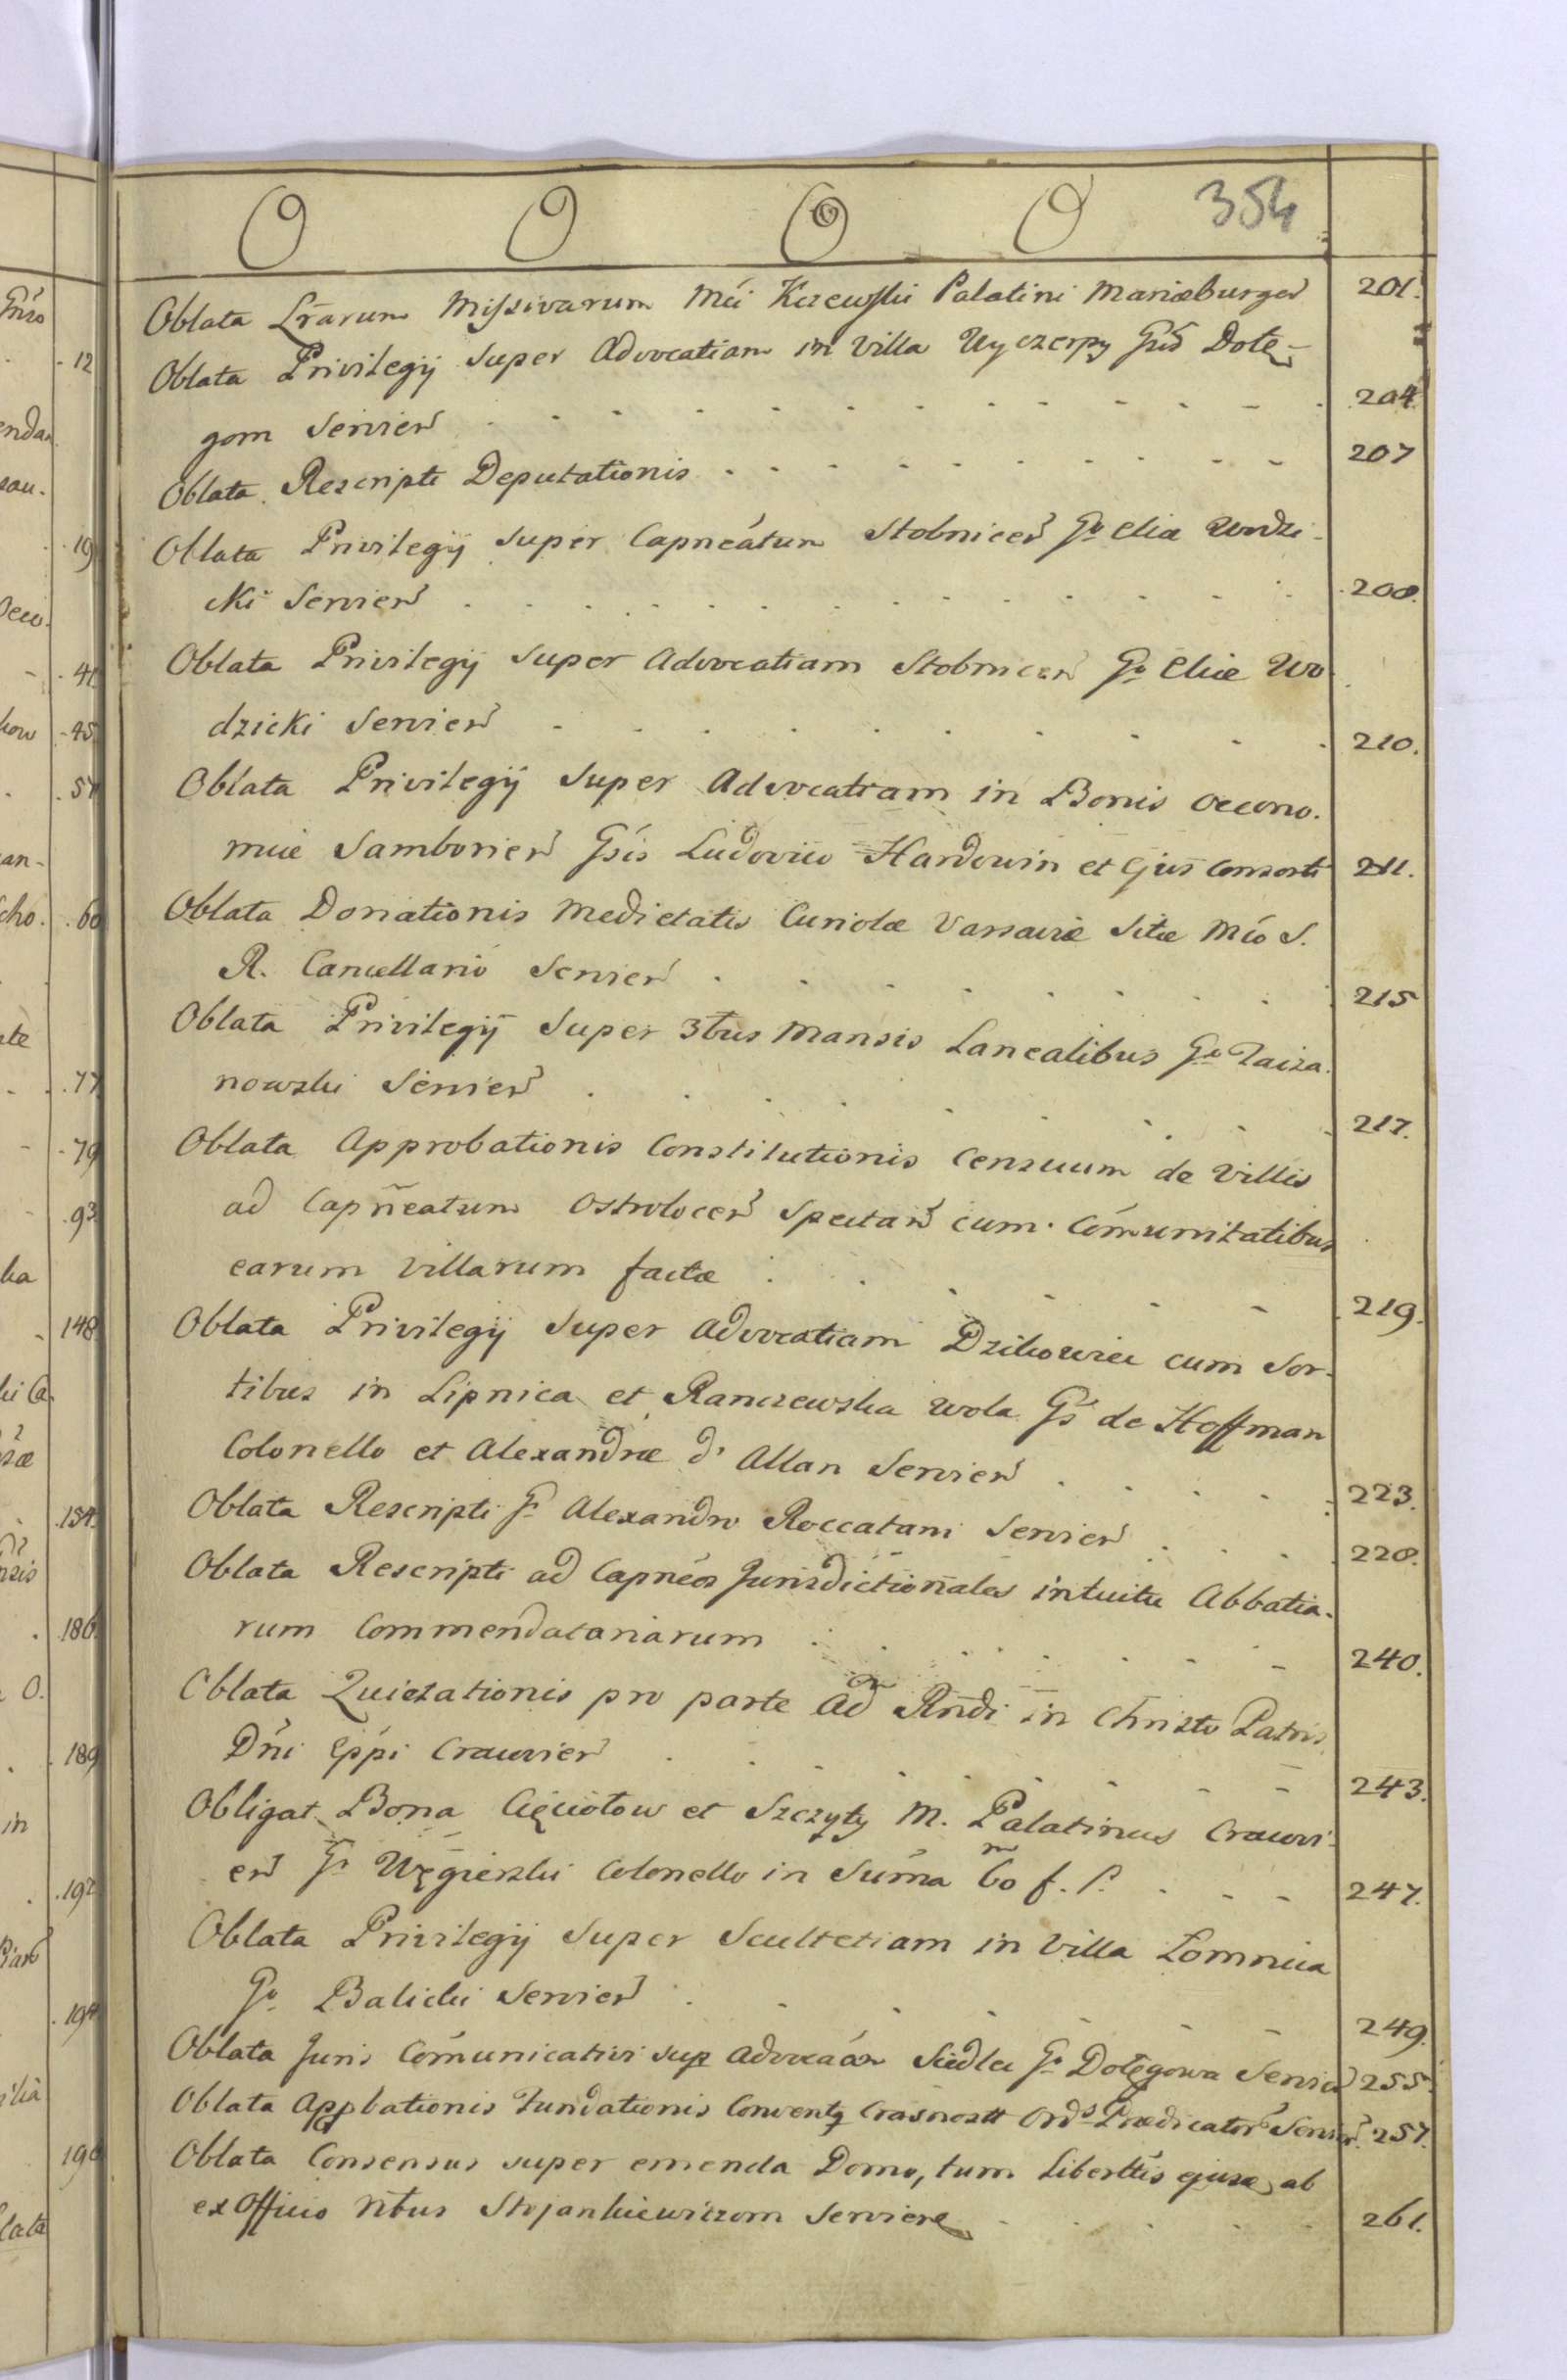 O O O O 354
Oblata Lrarum Missivarum Mci Kczewski Palatini Mariæburgen 201.
Oblata Privilegij super Advocatiam in Villa Wyczerpy Gsis Dołę-
gom Servien 204
Oblata Rescripti Deputationis 207
Oblata Privilegij super Capneatum Stobnicen Go Elia Wodzi-
cki Servien 208.
Oblata Privilegij super Advocatiam Stobnicen Go Eliæ Wo
dzicki Servien 210.
Oblata Privilegij super Advocatiam in Bonis Oecono.
miæ Samborien Gsis Ludovico Hardouin et Ejus Consorti 211.
Oblata Donationis Medietatis Curiolæ Varsaviæ Sitæ Mco S.
R. Cancellario Servien 215
Oblata Privilegij Super 3bus Mansis Lanealibus Go
nowski Servien 217.
Oblata Approbationis Constitutionis Censuum de Villis
ad Capneatum Ostrolocen Spectan cum Cómunitatibus
earum Villarum factæ 219.
Oblata Privilegij Super Advocatiam Dzikowiec cum Sor-
tibus in Lipnica et Ranczewska Wola Gs de Hoffman
Colonello et Alexandræ d' Allan Servien 223.
Oblata Rescripti Gs Alexandro Roccatani Servien 228.
Oblata Rescripti ad Capneos Jurisdictionales intuitu Abbatia-
rum Commendatariarum 240.
Oblata Quietationis pro parte Ad Rndi in Christo Patris
Dni Eppi Cracovien 243.
Obligat Bona Cięciołow et Szczyty M. Palatinus Cracovi-
en Gs Węgierski Colonello in Suma 60 m f. P. 247.
Oblata Privilegij Super Scultetiam in Villa Lomnica
Go Balicki Servien 249.
Oblata Juris Cómunicativi sup Advocaam Siedlec Go Dołęgowa Servien 255.
Oblata Appbationis Fundationis Conventq Crasnostt Ords Prædicator Servien 257.
Oblata Consensus super emenda Domo, tum Libertts ejusd ab
ex Officio Stojankiewiczom Serviens 261.
12
19
41
45
57
60
77
79
93
148
154.
186.
189
192
194
196